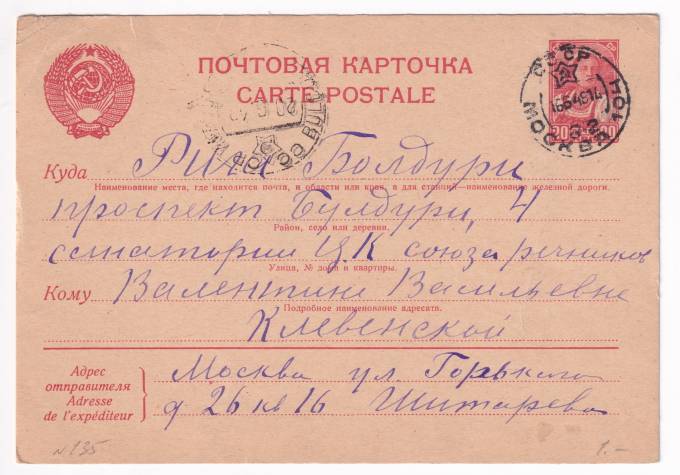 ПОЧТОВАЯ КАРТОЧКА
CARTE POSTALE
СССР
МОСКВА
20
Куда Рига Болдури
Наименование места, где находится почта, и области или края, а для станций—наименование железной дороги.
проспект Булдури, 4
Район, село или деревня.
санатории ЦК союза речников
Улица, № дома и квартиры.
Кому Валентине Васильевне
Подробное наименование адресата.
Клевенской
Адрес
отправителя
Adresse
de l'expéditeur
Москва ул Горького
д 26 кв 16 Шитарева
N 135
1.-